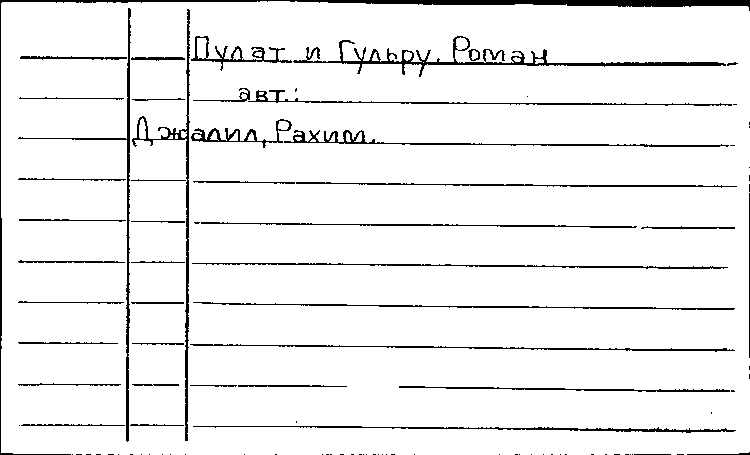 Пулат и Гульру. Роман
авт.:
Джалил, Рахим.